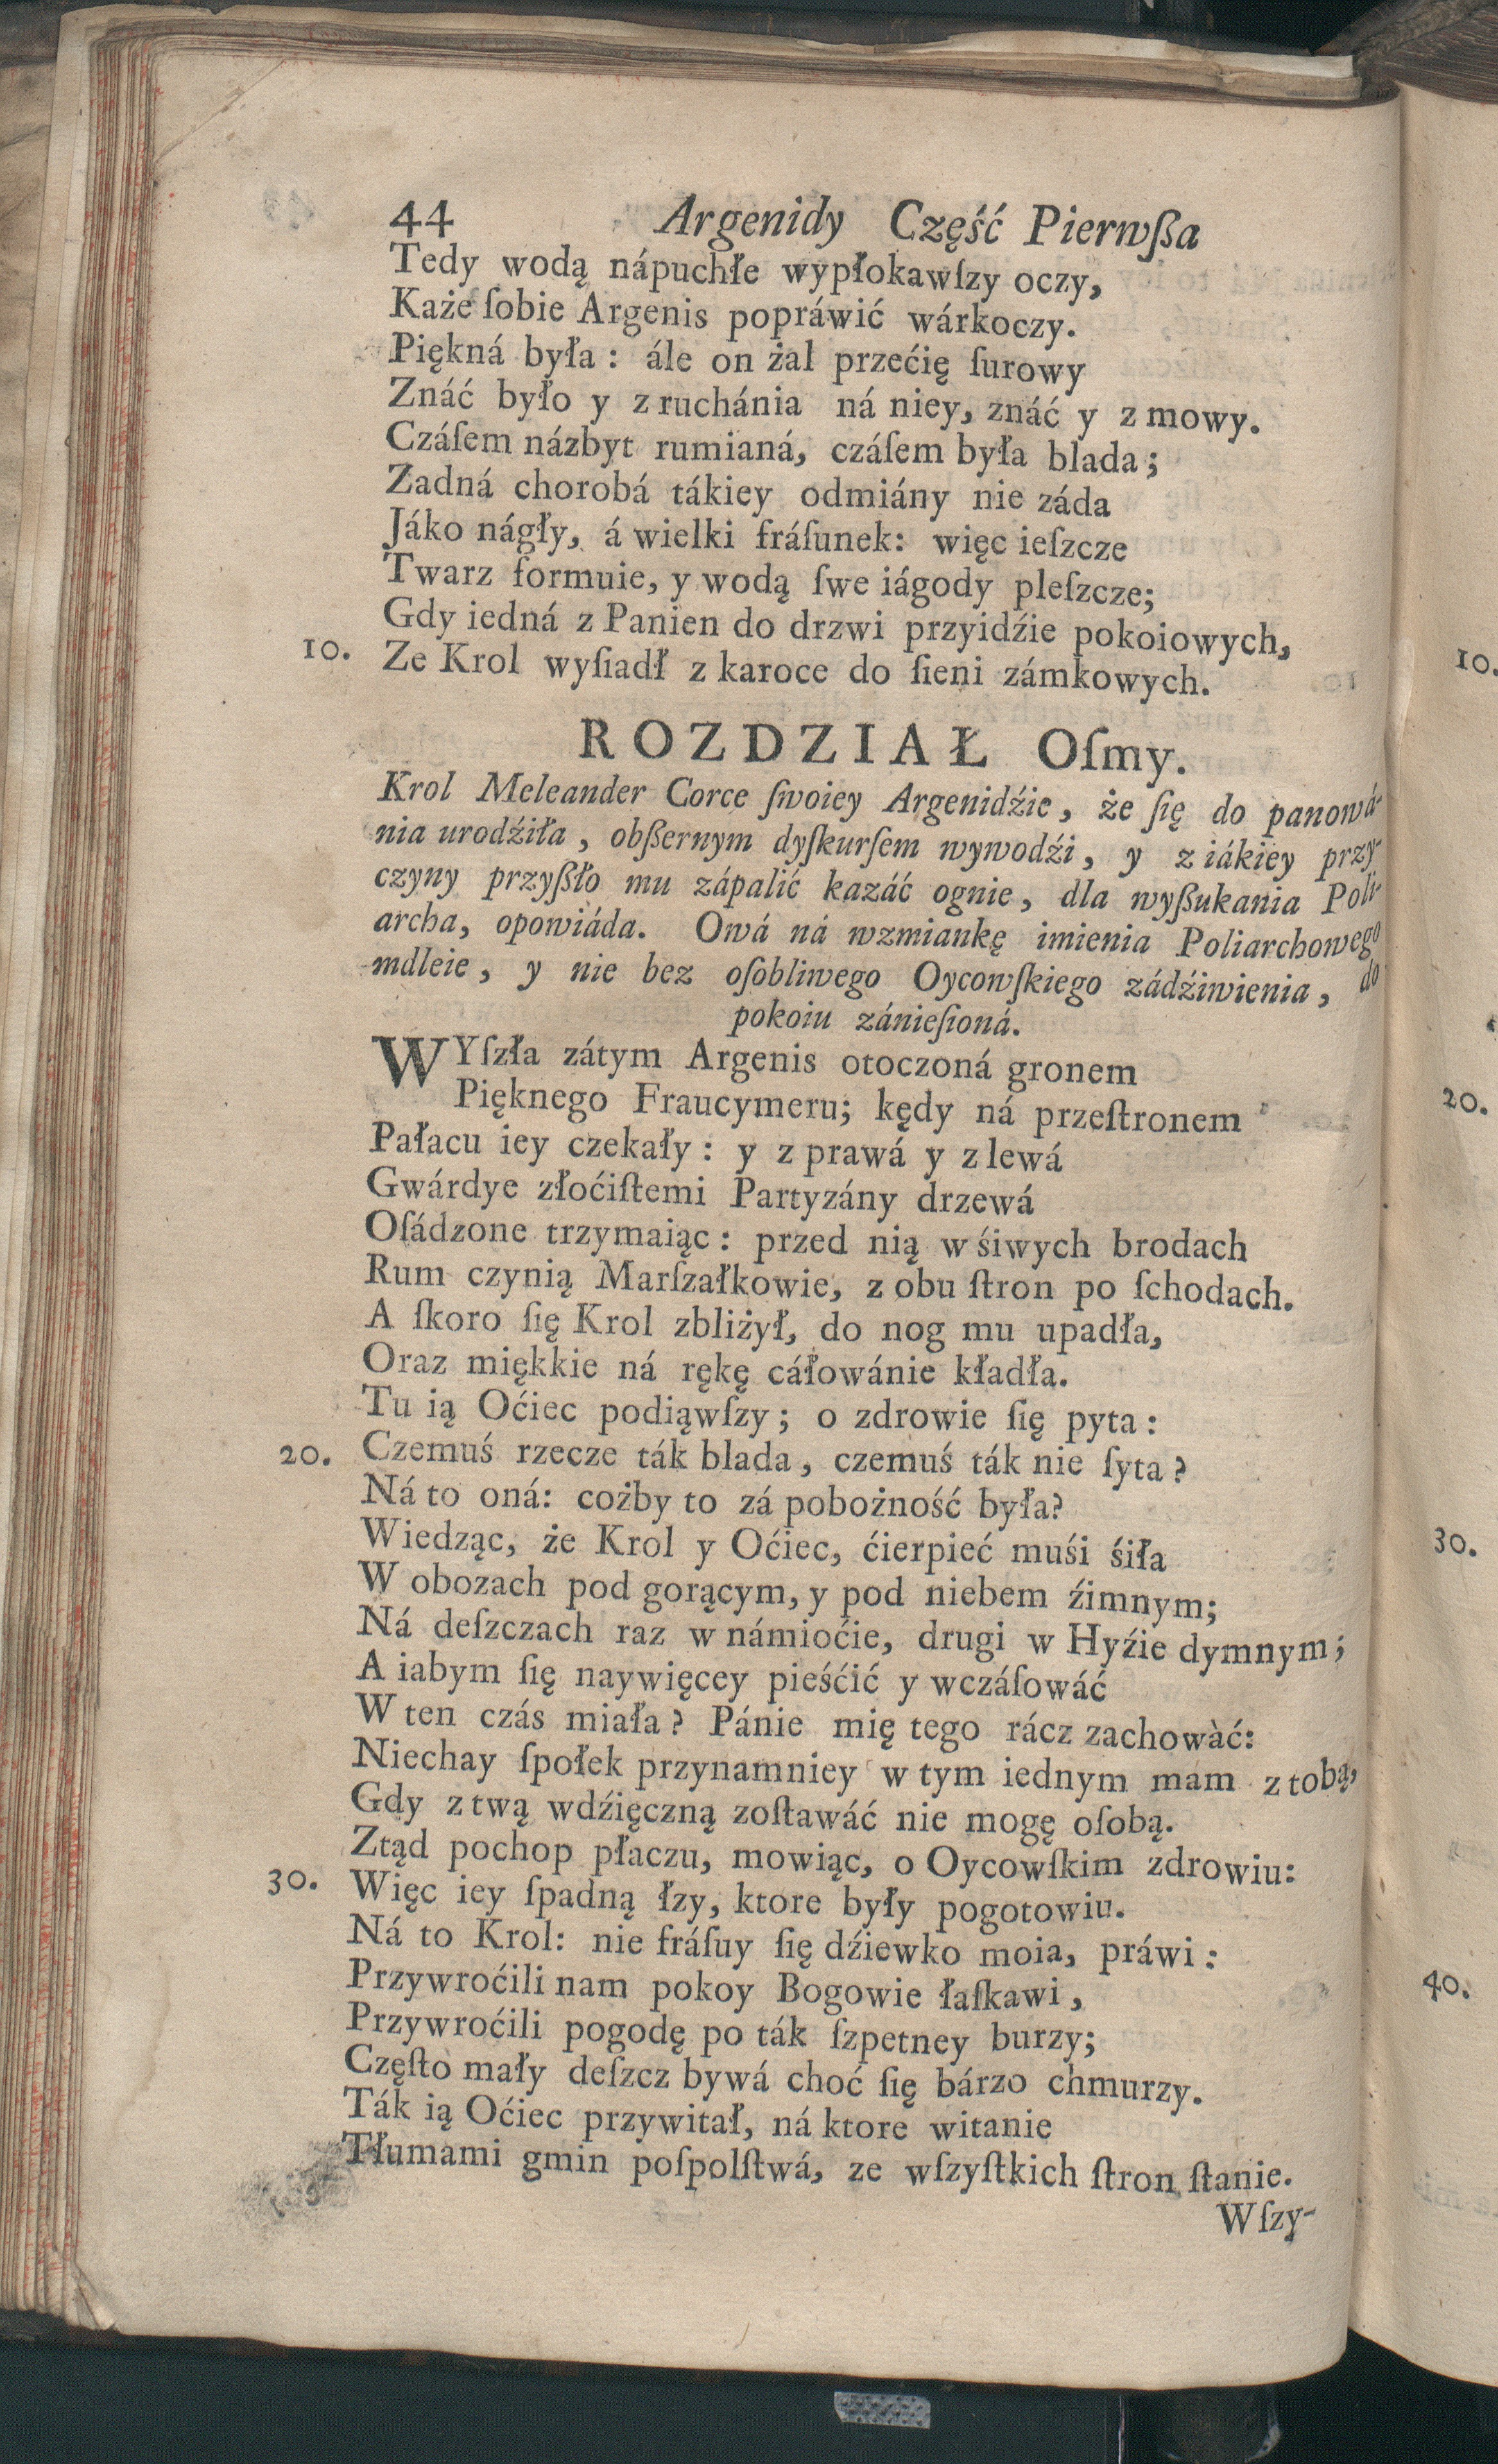 44 Argenidy Część Pierwßa
Tedy wodą nápuchłe wypłokawſzy oczy,
Każe ſobie Argenis popráwić wárkoczy.
Piękná była: ále on żal przećię ſurowy
Znáć było y z ruchánia ná niey, znáć y z mowy.
Czáſem názbyt rumianá, czáſem była blada;
Zadná chorobá tákiey odmiány nie záda
Jáko nágły, á wielki fráſunek: więc ieſzcze
Twarz formuie, y wodą ſwe iágody pleſzcze;
Gdy iedná z Panien do drzwi przyidźie pokoiowych,
10. Ze Krol wyſiadł z karoce do ſieni zámkowych.
ROZDZIAŁ Oſmy.
Krol Meleander Corce ſwoiey Argenidźie, że ſię do panowá-
nia urodźiła, obßernym dyſkurſem wywodźi, y z iákiey przy-
czyny przyßło mu zápalić kazáć ognie, dla wyßukania Poli-
archa, opowiáda. Owá ná wzmiankę imienia Poliarchowego
mdleie, y nie bez oſobliwego Oycowſkiego zádźiwienia, do
pokoiu zánieſioná.
WYſzła zátym Argenis otoczoná gronem
Pięknego Fraucymeru; kędy ná przeſtronem
Pałacu iey czekały: y z prawá y z lewá
Gwárdye złoćiſtemi Partyzány drzewá
Oſádzone trzymaiąc: przed nią w śiwych brodach
Rum czynią Marſzałkowie, z obu ſtron po ſchodach.
A ſkoro ſię Krol zbliżył, do nog mu upadła,
Oraz miękkie ná rękę cáłowánie kładła.
Tu ią Oćiec podiąwſzy; o zdrowie ſię pyta:
20. Czemuś rzecze ták blada, czemuś ták nie ſyta?
Ná to oná: cożby to zá pobożność była?
Wiedząc, że Krol y Oćiec, ćierpieć muśi śiła
W obozach pod gorącym, y pod niebem źimnym;
Ná deſzczach raz w námioćie, drugi w Hyźie dymnym;
A iabym ſię naywięcey pieśćić y wczáſowáć
W ten czás miała? Pánie mię tego rácz zachowàć:
Niechay ſpołek przynamniey w tym iednym mam z tobą,
Gdy z twą wdźięczną zoſtawáć nie mogę oſobą.
Ztąd pochop płaczu, mowiąc, o Oycowſkim zdrowiu:
30. Więc iey ſpadną łzy, ktore były pogotowiu.
Ná to Krol: nie fráſuy ſię dźiewko moia, práwi:
Przywroćili nam pokoy Bogowie łaſkawi,
Przywroćili pogodę po ták ſzpetney burzy;
Częſto mały deſzcz bywá choć ſię bárzo chmurzy.
Ták ią Oćiec przywitał, ná ktore witanie
Tłumami gmin poſpolſtwá, ze wſzyſtkich ſtron ſtanie.
Wſzy-
10.
20.
30.
40.